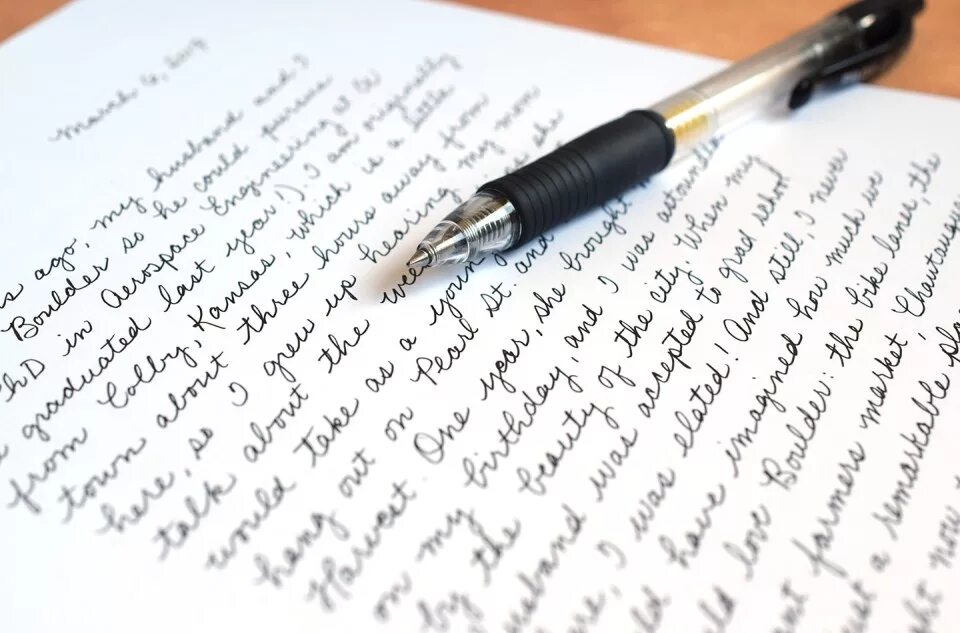 March 6,
ago, my husband and I
Boulder so he could pursue
PhD in Aerospace Engineering at C
graduated last year!). I am originally
from Colby, Kansas, which is a little
town about three hours away from
here, so I grew up hearing my mom
talk about the wee she
would take as a young
hang out on Pearl St. and
Harvest. One year, she brought
on my birthday, and I was astounde
by the beauty of the city. When my
usband was accepted to grad school
ere, I was elated! And still, I never
ld have imagined how much we
ld love Boulder: the bike lanes, the
nt farmers market, Chautauqu
ust a remarkable pla
ght now